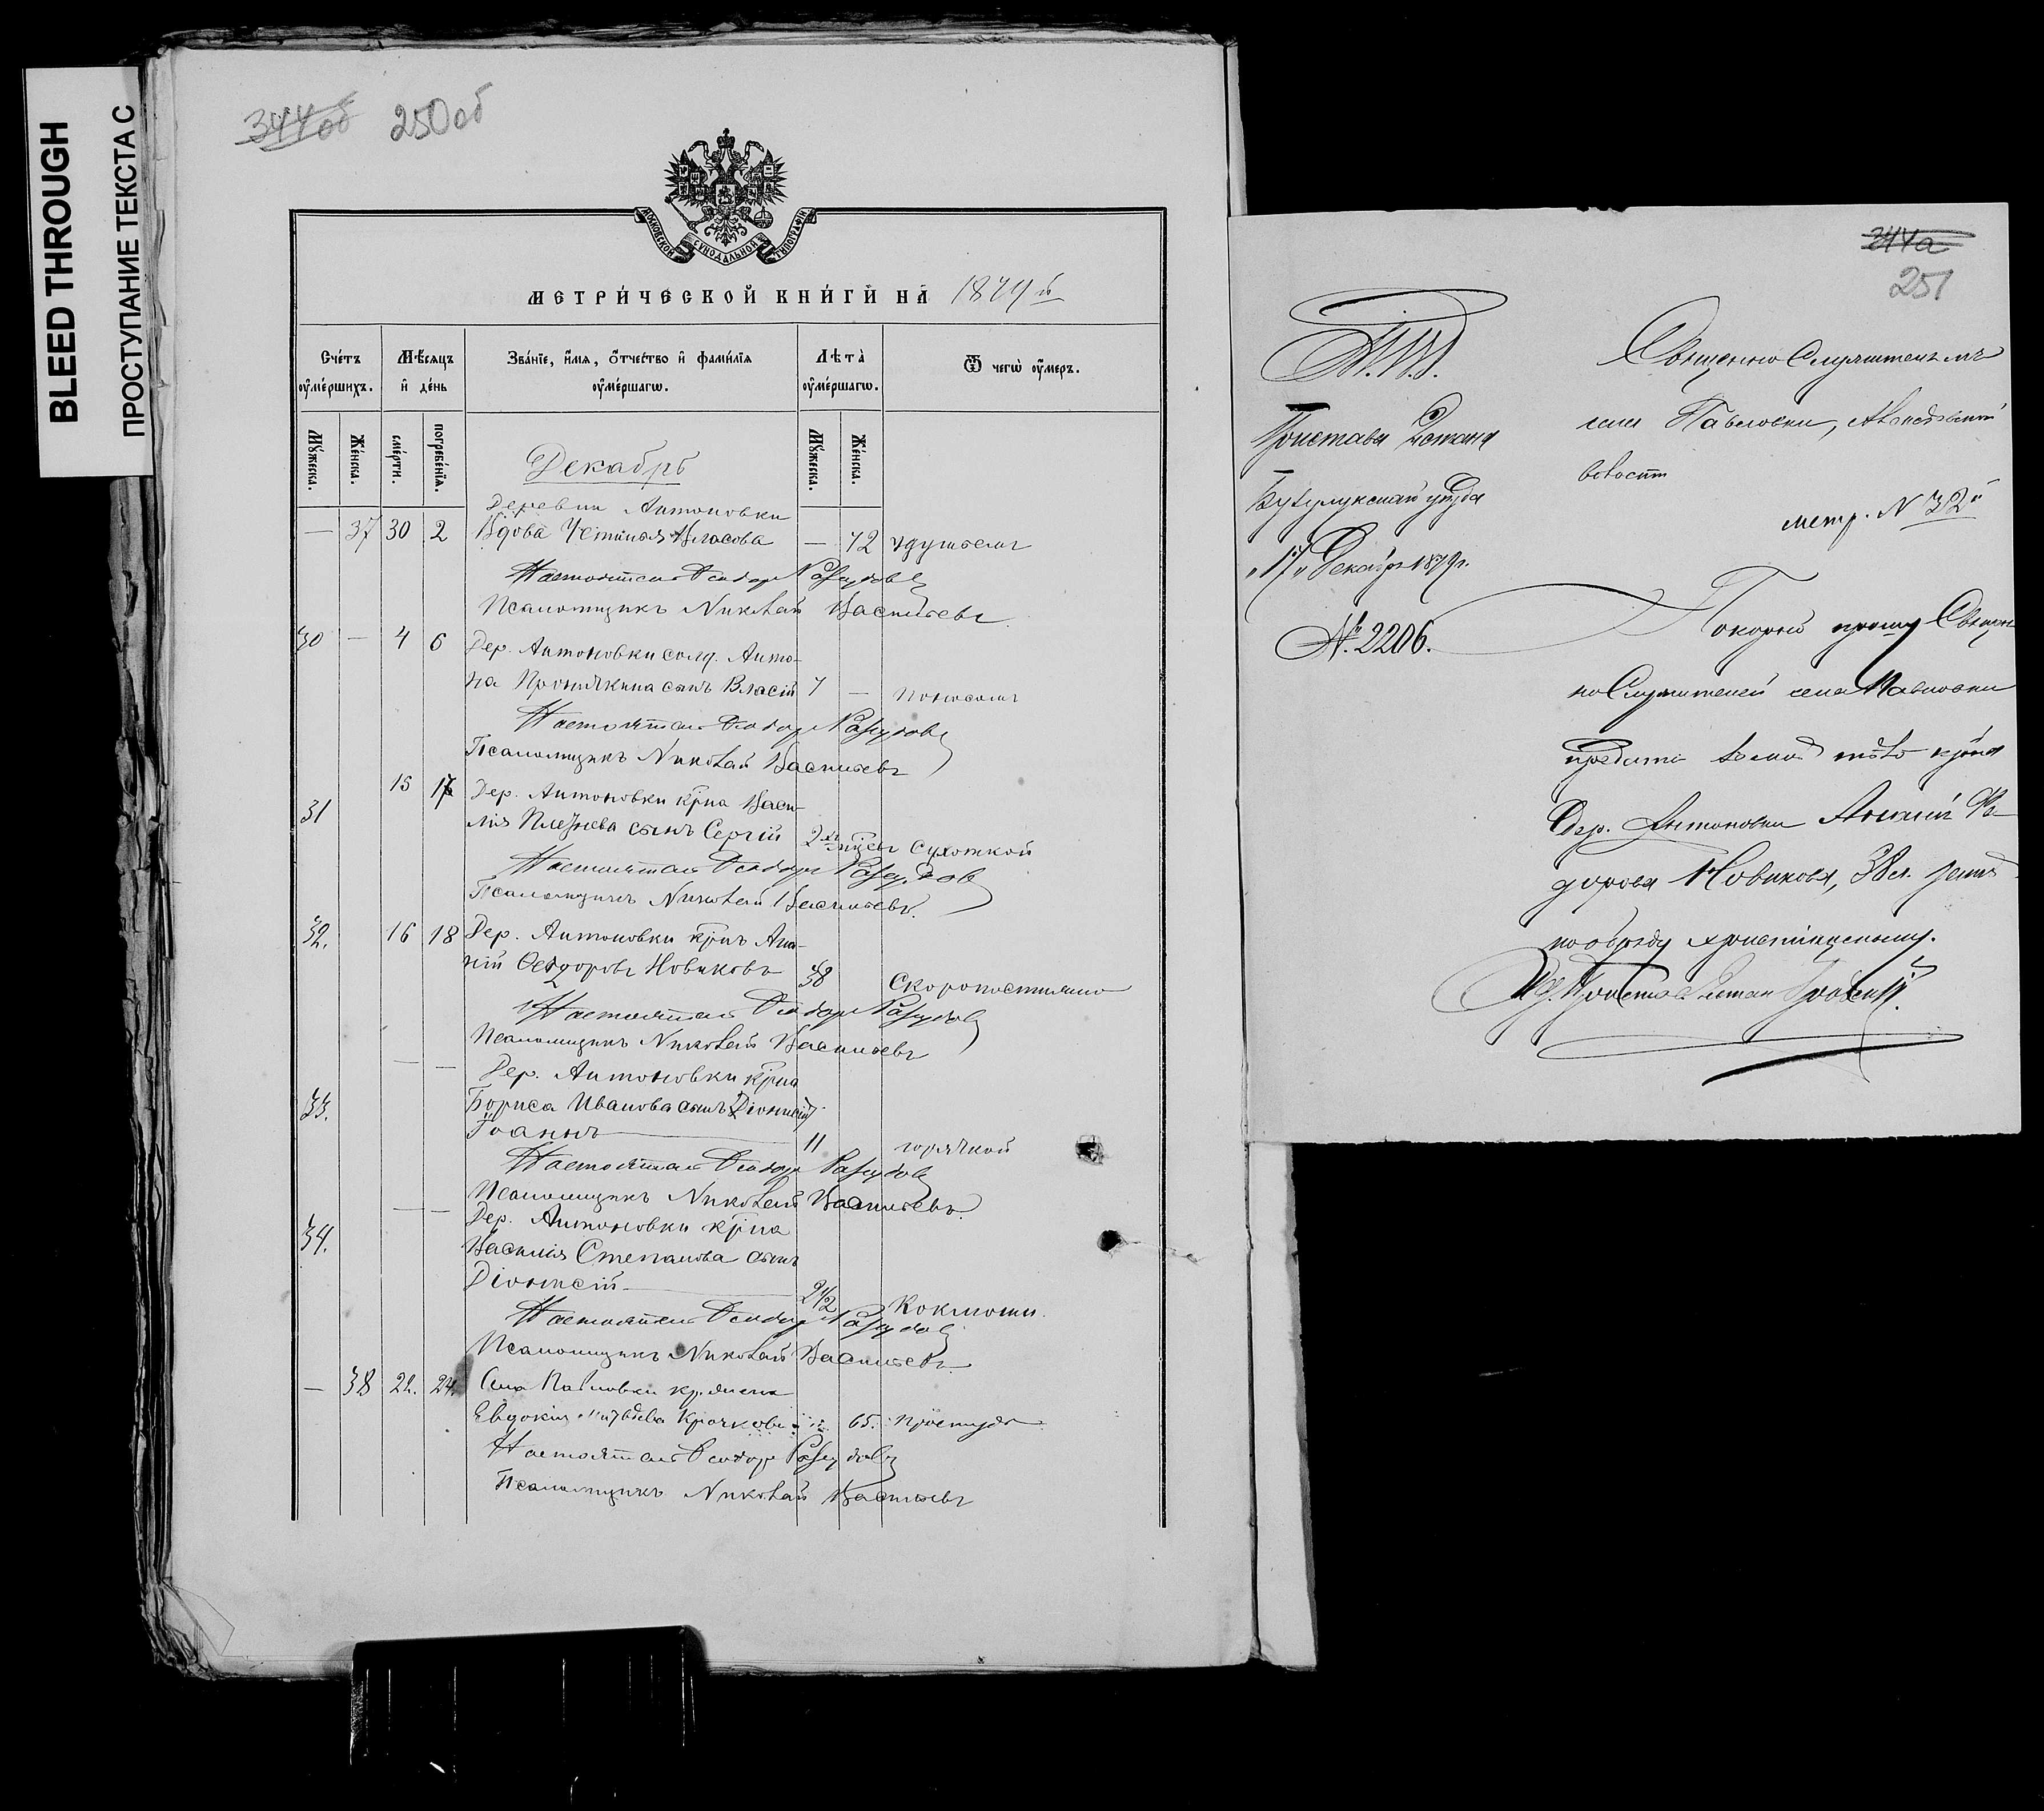 BLEED THROUGH
ПРОСТУПАНИЕ ТЕКСТА С
344об 250об
МОСКОВСКОЙ СѴНОДАЛЬНОЙ ТИПОГРАФІИ
МЕТРИ́ЧЕСКОЙ КНИ́ГИ НА̀ 1879 г
Сче́тъ ᲂу҆ме́ршихъ.
Мѣ́сяцъ и҆ де́нь
Зва́нїе, и҆́мѧ, ѻ҆́тчество и҆ фами́лїѧ ᲂу҆ме́ршагѡ.
Лѣ́та̀ ᲂу҆ме́ршагѡ.
Ѿ чегѡ̀ ᲂу҆́меръ.
Мꙋ́жеска.
Же́нска.
сме́рти.
погребе́нїѧ.
Мꙋ́жеска.
Же́нска.
Декабрь
Деревни Антоновки
— 37 30 2 Вдова Устинья Власова — 72 удушьемъ
Настоятель Ѳеодоръ Разудовъ
Псаломщикъ Николай Васильевъ
30 — 4 6 Дер. Антоновки солд. Анто-
на Пронякина сынъ Власій 7 — поносомъ
Настоятель Ѳеодоръ Разудовъ
Псаломщикъ Николай Васильевъ
31 15 17 Дер. Антоновки кр̃на Васи-
лія Плетнева сынъ Сергій 2хъ мцсы сухоткой
Настоятель Ѳеодоръ Разудовъ
Псаломщикъ Николай Васильевъ.
32. 16 18 Дер. Антоновки кр̃нъ Ана-
ній Ѳеодоровъ Новиковъ 38 Скоропостижно
Настоятель Ѳеодоръ Разудовъ
Псаломщикъ Николай Васильевъ
— — Дер. Антоновки кр̃на
33. Бориса Иванова сынъ Діонисій
Іоаннъ 11 горячкой
Настоятель Ѳеодоръ Разудовъ
Псаломщикъ Николай Васильевъ.
— — Дер. Антоновки кр̃на
34. Василія Степанова сынъ
Діонисій 2 1/2 Коклюши.
Настоятель Ѳеодоръ Разудовъ
Псаломщикъ Николай Васильевъ
— 38 22. 24. Села Павловки кр. жена
Евдокія Матвѣева Крючкова 65. простуды
Настоятель Ѳеодоръ Разудовъ
Псаломщикъ Николай Васильевъ
344а
251
М.В.Д.
Пристава 2 стана
Бузулукскаго уѣзда
„17„ Декабря 1879 г.
№ 2206.
Священно Служителямъ
села Павловки,
волости
метр. № 32й
Покорно прошу Священ
но Служителей села Павловки
предать тѣло кр̃на
дер. Антоновки Ананій Ѳе-
дорова Новикова, 38 л. землѣ
по обряду христіанскому.